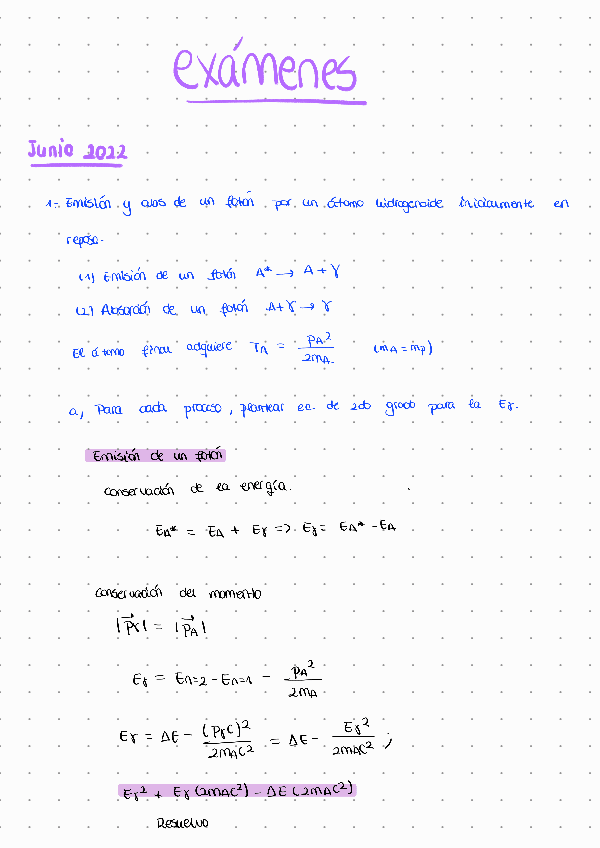 exámenes
Junio 2022
1.- Emisión y abs de un fotón por un átomo hidrogenoide inicialmente en
reposo.
(1) Emisión de un fotón A* → A + γ
(2) Absorción de un fotón A + γ → γ
El átomo final adquiere T_A = p_A²/2m_A (m_A = m_p)
a) Para cada proceso, plantear ec. de 2do grado para la Eγ.
Emisión de un fotón
conservación de la energía.
E_A* = E_A + Eγ => Eγ = E_A* - E_A
conservación del momento
|p⃗γ| = |p⃗_A|
Eγ = E_n=2 - E_n=1 - p_A²/2m_A
Eγ = ΔE - (pγc)²/2m_Ac² = ΔE - Eγ²/2m_Ac² ;
Eγ² + Eγ(2m_Ac²) - ΔE(2m_Ac²)
Resuelvo